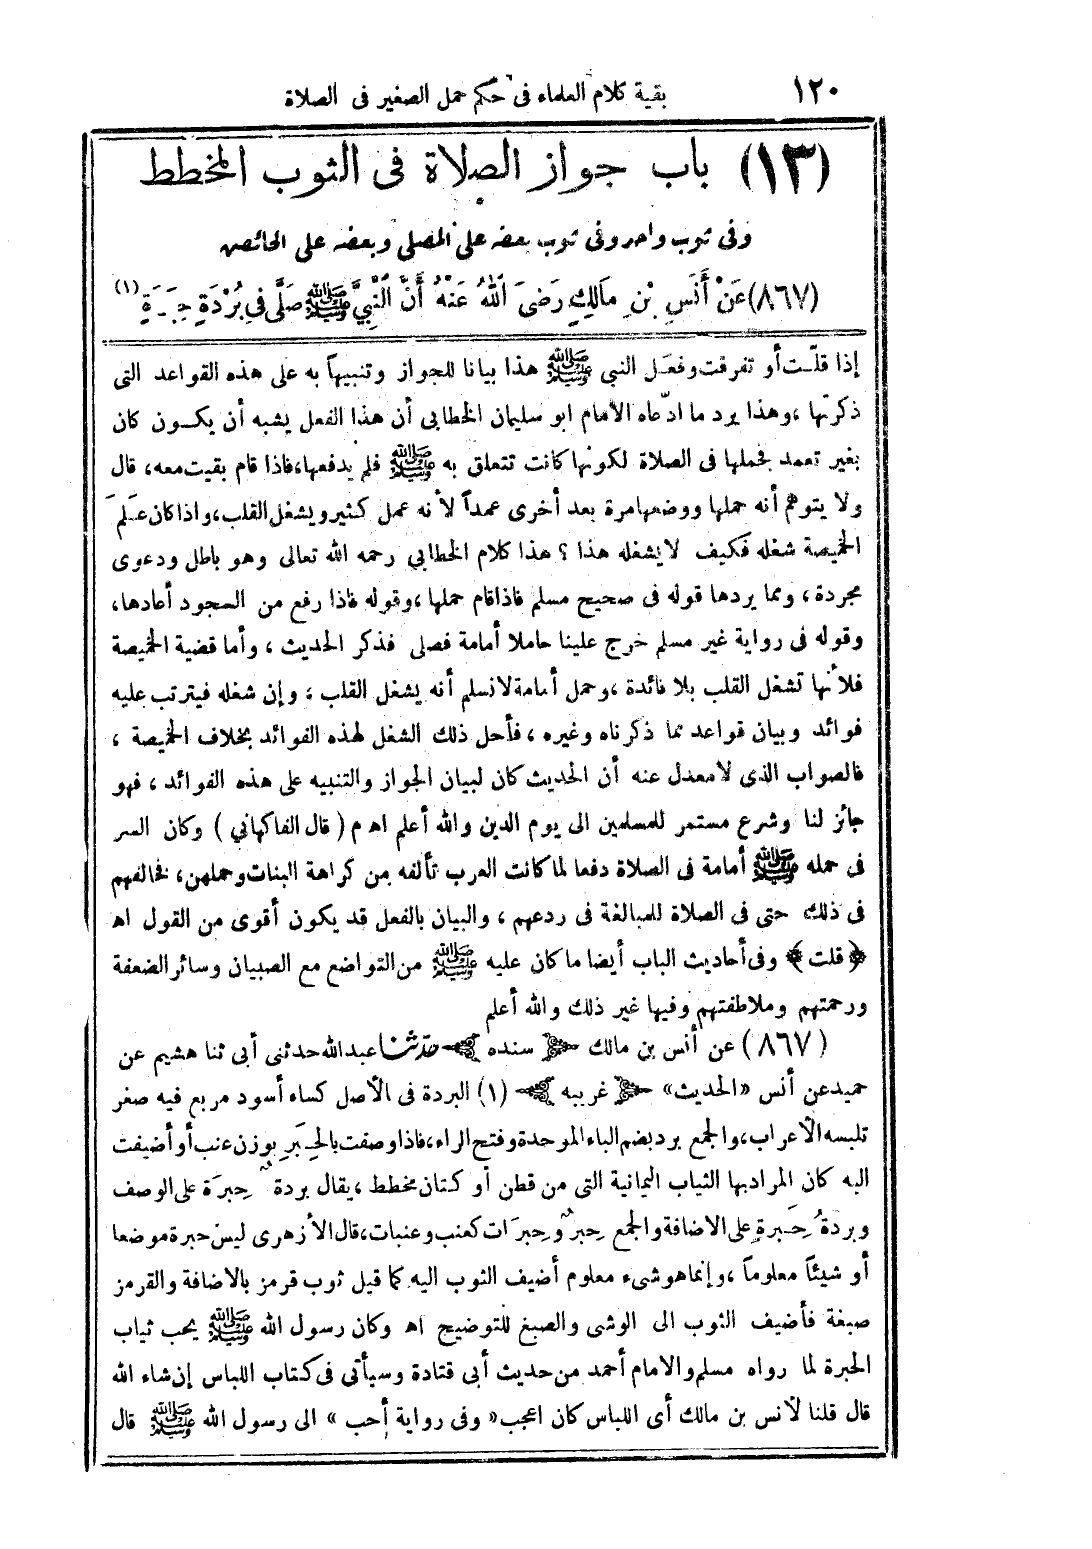 ١٢٠ بقية كلام العلماء فى حكم حمل الصغير فى الصلاة
(١٣) باب جواز الصلاة فى الثوب المخطط
وفى ثوب واحد وفى ثوب بعضه على المصلى وبعضه على الحائض
(٨٦٧) عَنْ أَنَسِ بْنِ مَالِكٍ رَضَىَ اللهُ عَنْهُ أَنَّ النَّبِيَّ ﷺ صَلَّى فِى بُرْدَةٍ حِبَرَةٍ (١)
إذا قلّت أو تفرقت وفعَل النبى ﷺ هذا بيانا للجواز وتنبيهاً به على هذه القواعد التى
ذكرتها ، وهذا يرد ما ادّعاه الامام ابو سليمان الخطابى أن هذا الفعل يشبه أن يكون كان
بغير تعمد فحملها فى الصلاة لكونها كانت تتعلق به ﷺ فلم يدفعها، فاذا قام بقيت معه، قال
ولا يتوهم أنه حملها ووضعها مرة بعد أخرى عمداً لأنه عمل كثير ويشغل القلب، واذا كان عَلَم
الخميصة شغله فكيف لا يشغله هذا ؟ هذا كلام الخطابى رحمه الله تعالى وهو باطل ودعوى
مجردة ، ومما يردها قوله فى صحيح مسلم فاذا قام حملها ، وقوله فاذا رفع من السجود أعادها،
وقوله فى رواية غير مسلم خرج علينا حاملا أمامة فصلى فذكر الحديث ، وأما قضية الخميصة
فلأنها تشغل القلب بلا فائدة ، وحمل أمامة لا نسلم أنه يشغل القلب ، وإن شغله فيترتب عليه
فوائد وبيان قواعد مما ذكرناه وغيره ، فأحل ذلك الشغل لهذه الفوائد بخلاف الخميصة ،
فالصواب الذى لا معدل عنه أن الحديث كان لبيان الجواز والتنبيه على هذه الفوائد ، فهو
جائز لنا وشرع مستمر للمسلمين الى يوم الدين والله أعلم اه م ( قال الفاكهانى ) وكان السر
فى حمله ﷺ أمامة فى الصلاة دفعا لما كانت العرب تألفه من كراهة البنات وحملهن، فخالفهم
فى ذلك حتى فى الصلاة للمبالغة فى ردعهم ، والبيان بالفعل قد يكون أقوى من القول اه
﴿قلت﴾ وفى أحاديث الباب أيضا ما كان عليه ﷺ من التواضع مع الصبيان وسائر الضعفة
ورحمتهم وملاطفتهم وفيها غير ذلك والله أعلم
(٨٦٧) عن أنس بن مالك ﴿سنده﴾ حدثنا عبد الله حدثنى أبى ثنا هشيم عن
حميد عن أنس «الحديث» ﴿غريبه﴾ (١) البردة فى الأصل كساء أسود مربع فيه صغر
تلبسه الأعراب، والجمع برد بضم الباء الموحدة وفتح الراء، فاذا وصفت بالحِبَرِ بوزن عنب أو أضيفت
اليه كان المراد بها الثياب اليمانية التى من قطن أو كتان مخطط ، يقال بردةٌ حِبرَة على الوصف
وبردةُ حِبَرةٍ على الاضافة والجمع حِبرٌ وحِبرَات كعنب وعنبات، قال الأزهرى ليس حبرة موضعا
أو شيئاً معلوماً ، وإنما هو شىء معلوم أضيف الثوب اليه كما قيل ثوب قرمز بالاضافة والقرمز
صبغة فأضيف الثوب الى الوشى والصبغ للتوضيح اه وكان رسول الله ﷺ يحب ثياب
الحبرة لما رواه مسلم والامام أحمد من حديث أبى قتادة وسيأتى فى كتاب اللباس إن شاء الله
قال قلنا لأنس بن مالك أى اللباس كان اعجب « وفى رواية أحب » الى رسول الله ﷺ قال